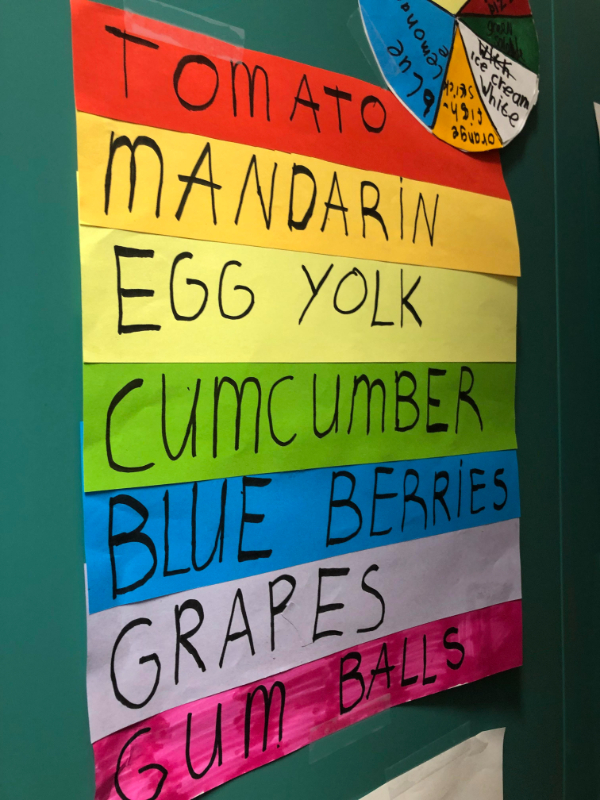 TOMATO
MANDARiN
EGG YOLK
CUMCUMBER
BLUE BERRiES
GRAPES
GUM BALLS
blue
lemonade
orange
fish-
stick
white
ice cream